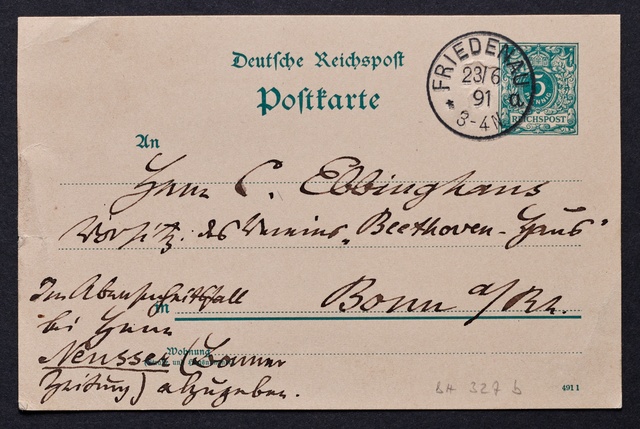 Deutsche Reichspost
Postkarte
* FRIEDENAU
23/6
91 a.
3-4N
5
PFENNIG
REICHSPOST
An
Herrn C. Ebbinghaus
Vorsitz. des Vereins „Beethoven-Haus"
in Bonn a/Rh.
Im Abwesenheitsfall
bei Herrn
Neusser (Bonner
Zeitung) abzugeben.
Wohnung
BH 327 b
491 1